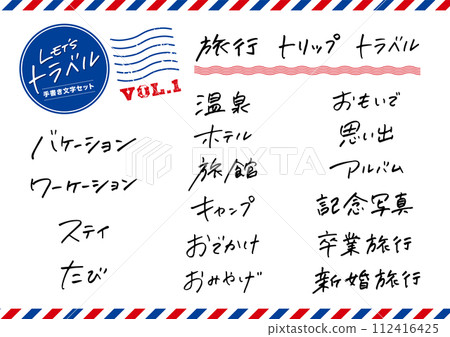 Let's
トラベル
手書き文字セット
VOL.1
旅行 トリップ トラベル
バケーション
ワーケーション
ステイ
たび
温泉
ホテル
旅館
キャンプ
おでかけ
おみやげ
おもいで
思い出
アルバム
記念写真
卒業旅行
新婚旅行
PIXTA
pixta.jp - 112416425